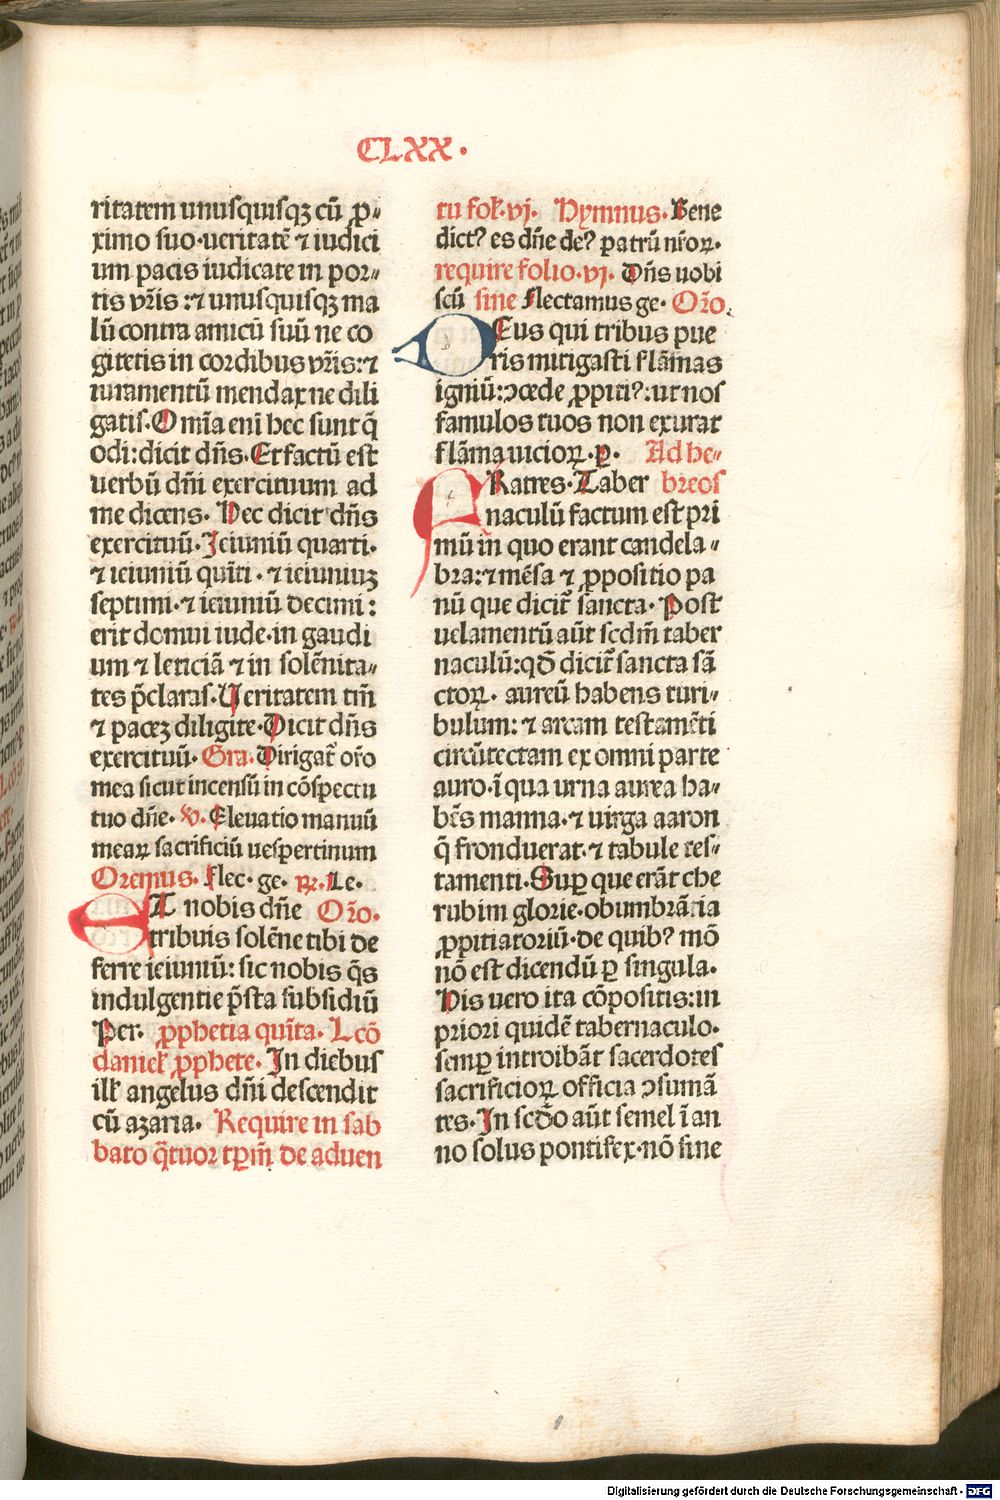 CLXX.
ritatem unusquisqꝫ cū ꝓ⸗
ximo suo·ueritatē ⁊ iudici
um pacis iudicate in por⸗
tis vr̄is:⁊ unusquisqꝫ ma
lū contra amicū suū ne co
gitetis in cordibus vr̄is:⁊
iuramentū mendax ne dili
gatis·Omīa eni hec sunt q̄
odi:dicit dn̄s·Et factū est
uerbū dn̄i exercituum ad
me dicens·Hec dicit dn̄s
exercituū·Ieiuniū quarti·
⁊ ieiuniū quīti·⁊ ieiuniuꝫ
septimi·⁊ ieiuniū decimi:
erit domui iude·in gaudi
um ⁊ leticiā ⁊ in solēnita⸗
tes p̄claras·Ueritatem tm̄
⁊ paceꝫ diligite·Dicit dn̄s
exercituū·Gra·Dirigat̄ or̄o
mea sicut incensū in cōspectu
tuo dn̄e·℣·Eleuatio manuū
mearꝝ sacrificiū uespertinum
Oremus·Flec·ge·℞·Le·
UT nobis dn̄e Or̄o·
tribuis solēne tibi de
ferre ieiuniū:sic nobis q̄s
indulgentie p̄sta subsidiū
Per· ꝓphetia quīta·Lcō
danieľ ꝓphete·In diebus
ilľ angelus dn̄i descendit
cū azaria·Require in sab
bato q̄tuor tꝑm̄ de aduen
tu foľ·vj· Hymnus·Bene
dictꝰ es dn̄e deꝰ patrū nr̄orꝝ·
require folio·vj·Dn̄s uobi
scū sine Flectamus ge·Or̄o·
DEus qui tribus pue
ris mitigasti flāmas
igniū:ↄcede ꝓpitiꝰ:ut nos
famulos tuos non exurat
flāma uiciorꝝ·ꝑ· Ad he⸗
FRatres·Taber breos
naculū factum est pri
mū in quo erant candela⸗
bra:⁊ mēsa ⁊ ꝓpositio pa
nū que dicit̄ sancta·Post
uelamentū aūt scdm̄ taber
naculū:qd̄ dicit̄ sancta sā
ctorꝝ·aureū habens turi⸗
bulum:⁊ arcam testamēti
circūtectam ex omni parte
auro·ī qua urna aurea ha⸗
bēs manna·⁊ uirga aaron
q̄ fronduerat·⁊ tabule tes⸗
tamenti·Suꝑ que erāt che
rubim glorie·obumbrātia
ꝓpitiatoriū·de quibꝰ mō
nō est dicendū ꝑ singula·
His uero ita cōpositis:in
priori quidē tabernaculo·
semꝑ introibāt sacerdotes
sacrificiorꝝ officia ↄsumā
tes·In scd̄o aūt semel ī an
no solus pontifex·nō sine
Digitalisierung gefördert durch die Deutsche Forschungsgemeinschaft - DFG